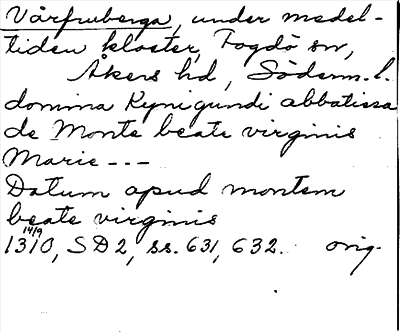 Vårfruberga, under medel-
tiden kloster, Fogdö sn,
Åkers hd, Söderm. l.
domina Kynigundi abbatissa
de Monte beate virginis
Marie ---
Datum apud montem
beate virginis
14/9
1310, SD2, ss. 631, 632. orig.